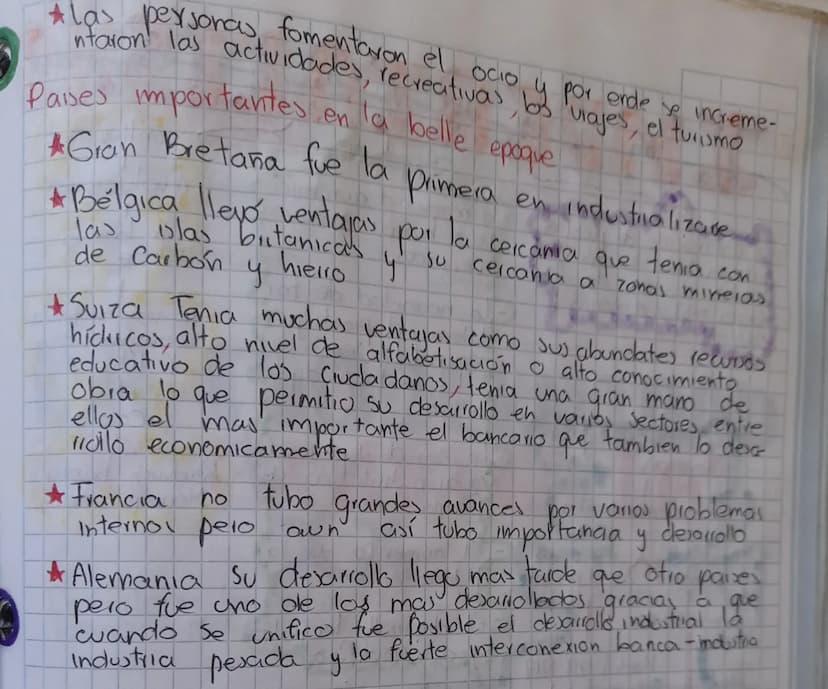 ★Las personas fomentaron el ocio y por ende se increme-
ntaron las actividades, recreativas, los viajes, el turismo
Paises importantes en la belle epoque
★Gran Bretaña fue la primera en industrializarse
★Bélgica llevó ventajas por la cercania que tenia con
las islas britanicas y su cercania a zonas mineras
de Carbón y hierro
★Suiza Tenia muchas ventajas como sus abundates recursos
hídricos, alto nivel de alfabetisación o alto conocimiento
educativo de los ciudadanos, tenia una gran mano de
obra lo que permitio su desarrollo en varios sectores, entre
ellos el mas importante el bancario que tambien lo desa-
rrollo economicamente
★Francia no tubo grandes avances por varios problemas
internos pero aun asi tubo importancia y desarrollo
★Alemania su desarrollo llego mas tarde que otro paises
pero fue uno de los mas desarrollados gracias a que
cuando se unifico fue posible el desarrollo industrial la
industria pesada y la fuerte interconexion banca-industria